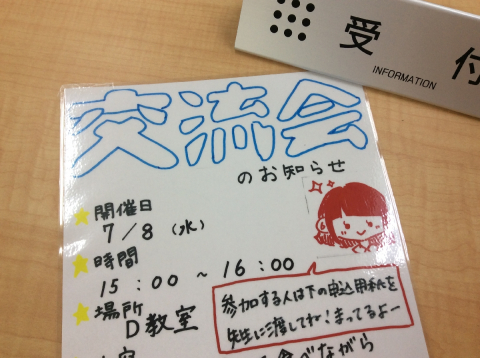 受付
INFORMATION
交流会
のお知らせ
開催日
7/8（水）
時間
15:00～16:00
場所
D教室
参加する人は下の申込用紙を
先生に渡してね!まってるよー
べながら